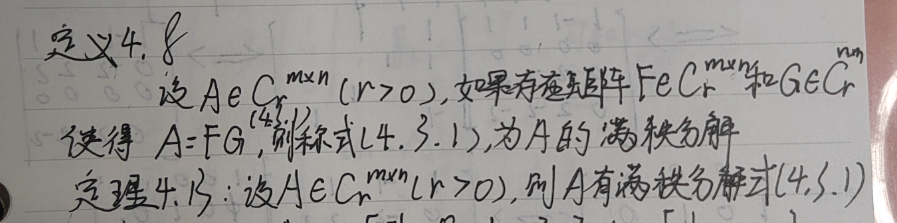 定义4.8
设A∈C_r^{m×n}(r>0),如果存在矩阵F∈C_r^{m×n}和G∈C_r^{n×n}
使得 A=FG (4.3.1),则称式(4.3.1),为A的满秩分解
定理4.13:设A∈C_r^{m×n}(r>0),则A有满秩分解式(4.3.1)